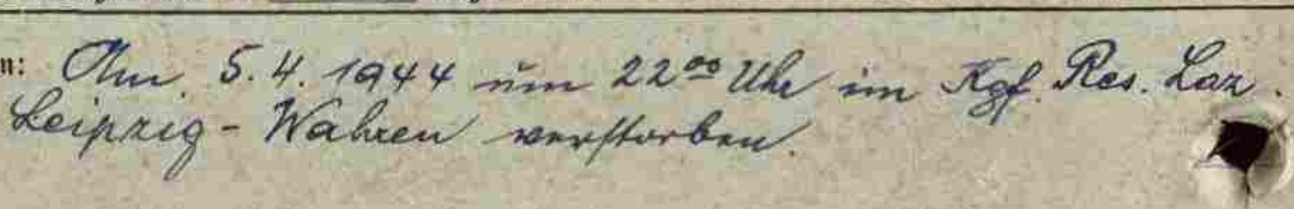 n: Am. 5.4.1944 um 22⁰⁰ Uhr im Kgf. Res. Laz.
Leipzig-Wahren verstorben.